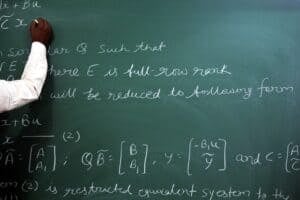 ẋ + Bu
C x
nsingular Q such that
where E is full row rank
will be reduced to following form
x + Bu
(2)
Ā = [A A₁] ; Q B̄ = [B B₁] , y = [-B₁u ỹ] and C = [A
(2) is restricted equivalent system to the